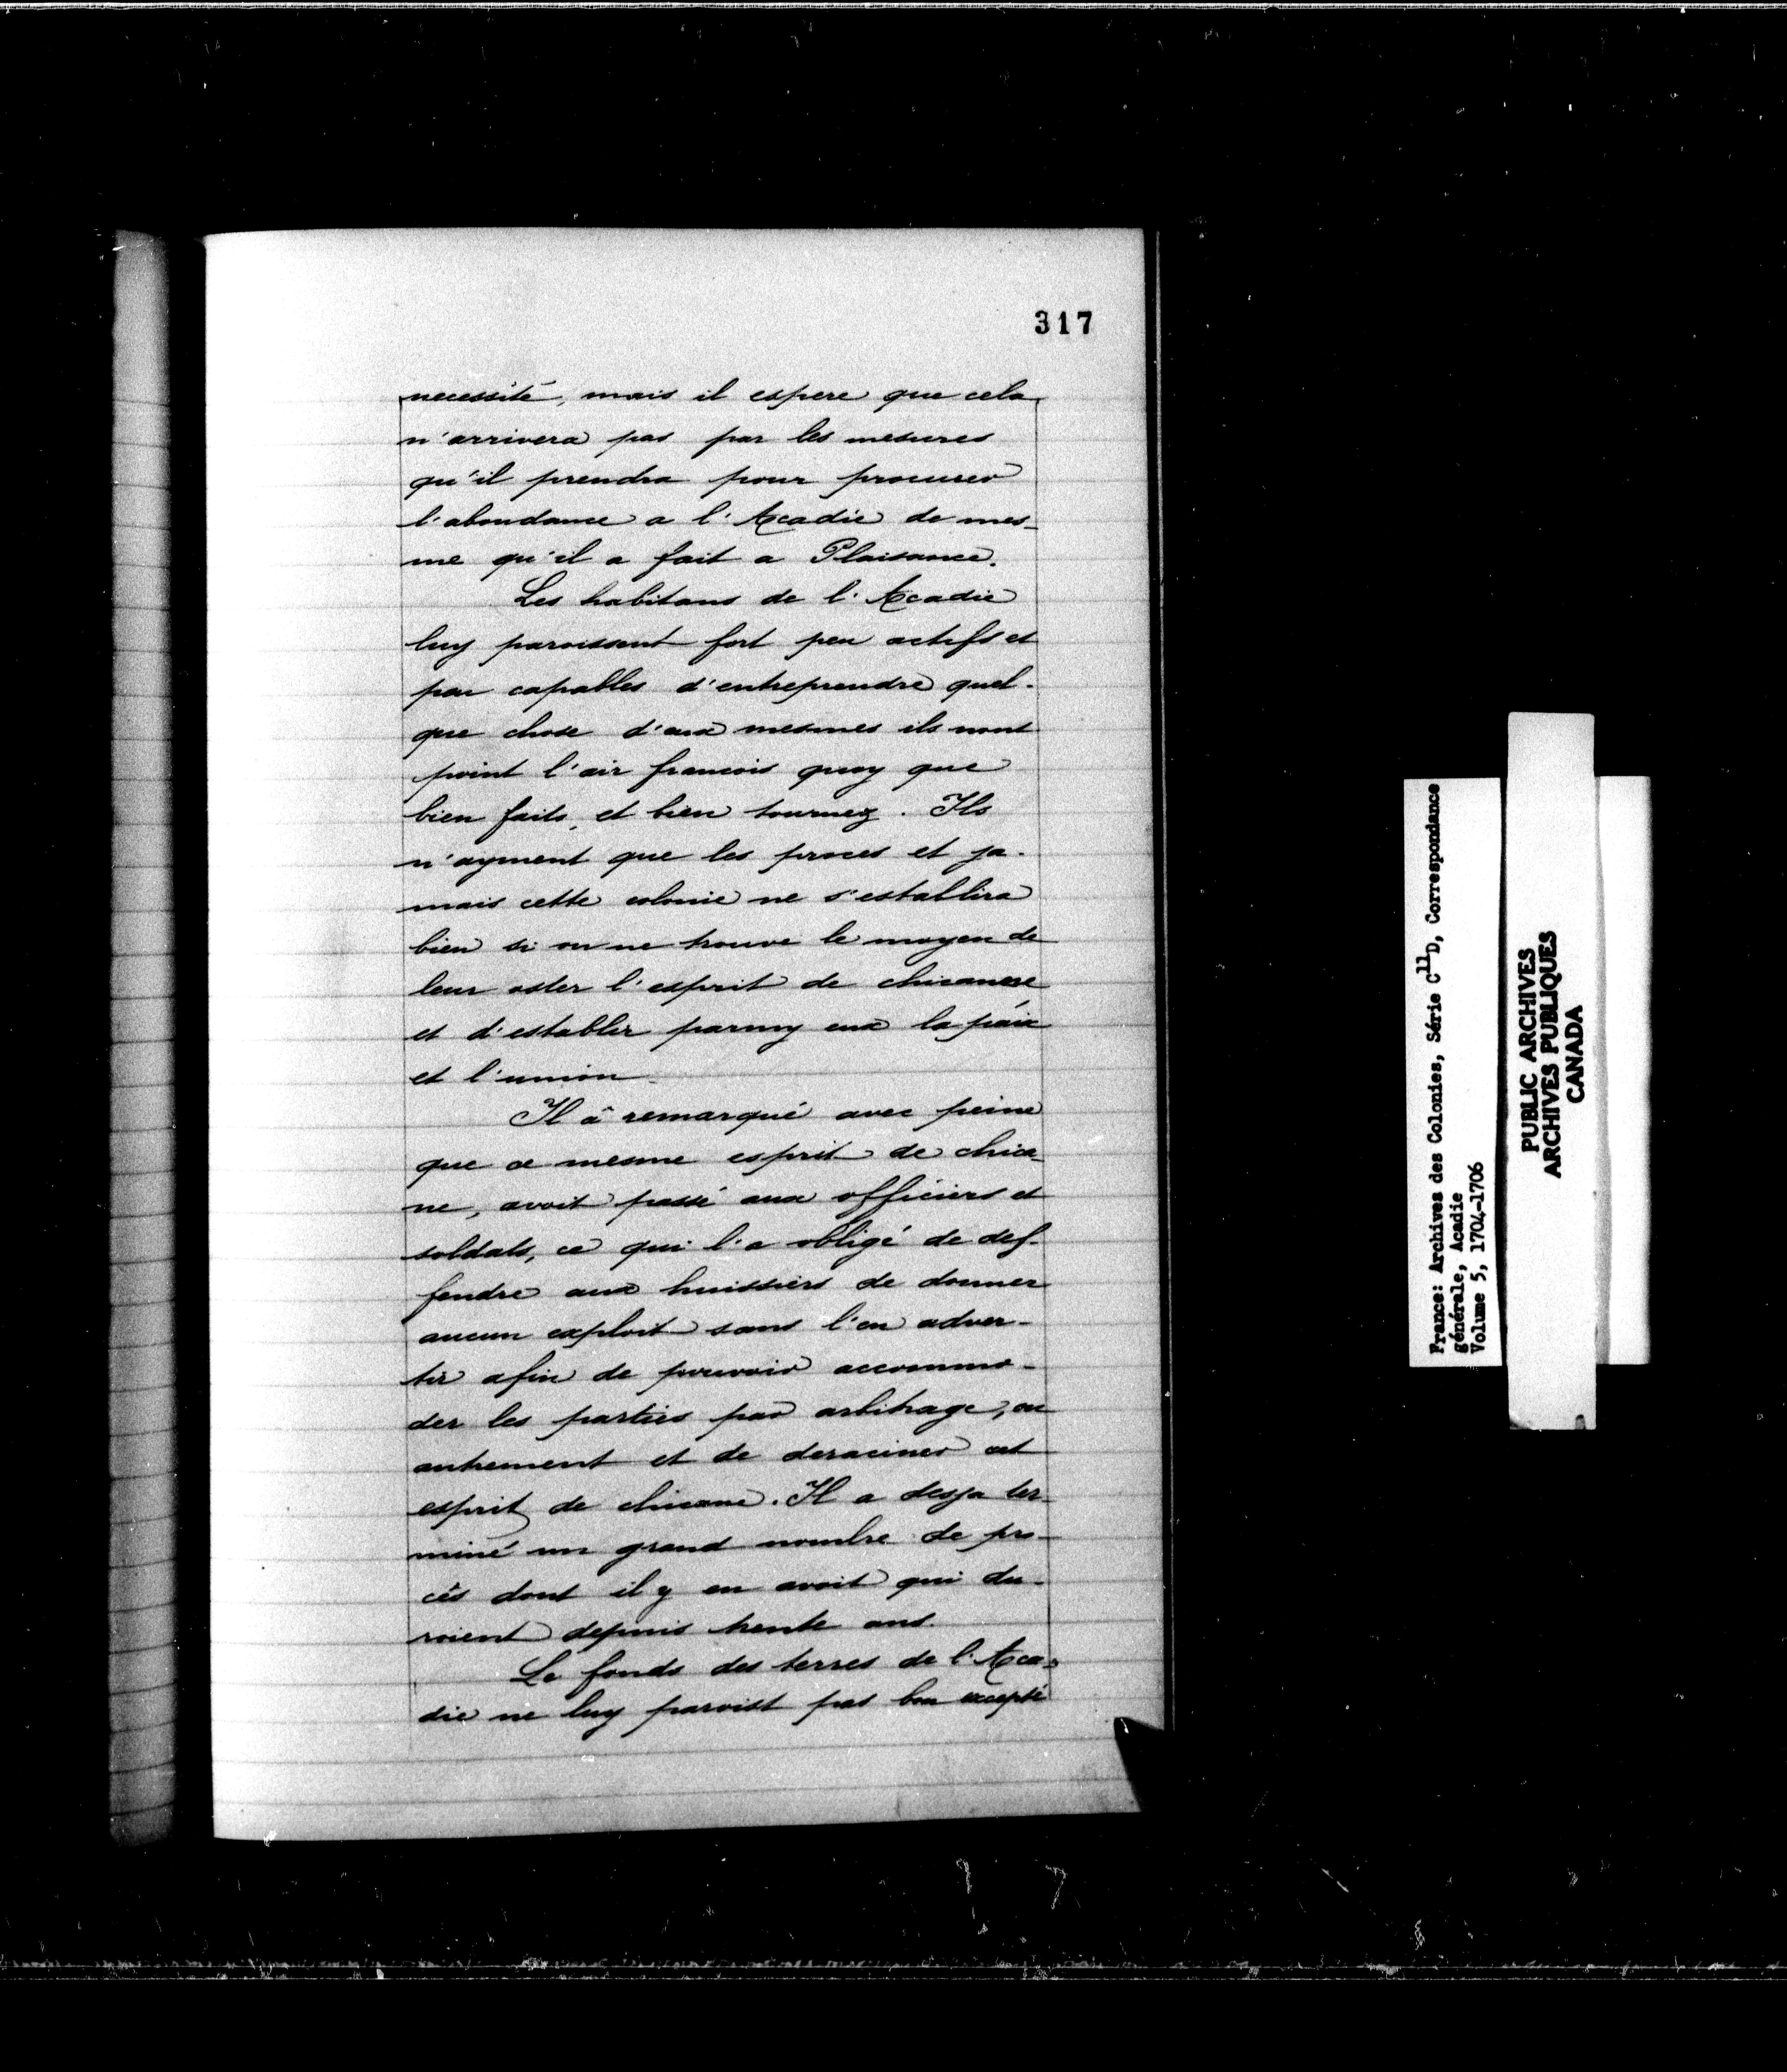 317
necessité, mais il espere que cela
n'arrivera pas par les mesures
qu'il prendra pour procurer
l'abondance a l'Acadie de mes-
me qu'il a fait a Plaisance.
Les habitans de l'Acadie
luy paroissent fort peu actifs et
peu capables d'entreprendre quel-
que chose d'eux mesmes ils nont
point l'air francois quoy que
bien faits, et bien tournez. Ils
n'ayment que les proces et ja-
mais cette colonie ne s'establira
bien si on ne trouve le moyen de
leur oster l'esprit de chicanne
et d'establir parmy eux la paix
et l'union.
Il â remarqué avec peine
que ce mesme esprit de chica-
ne, avoit passé aux officiers et
soldats, ce qui l'a obligé de def-
fendre aux huissiers de donner
aucun exploit sans l'en adver-
tir afin de pouvoir accommo-
der les parties par arbitrage, ou
autrement et de deraciner cet
esprit de chicane. Il a desja ter-
miné un grand nombre de pro-
cês dont il y en avoit qui du-
roient depuis trente ans.
Le fonds des terres de l'Aca-
die ne luy paroist pas bon excepté
France: Archives des Colonies, Série C11D, Correspondance
générale, Acadie
Volume 5, 1704-1706
PUBLIC ARCHIVES
ARCHIVES PUBLIQUES
CANADA